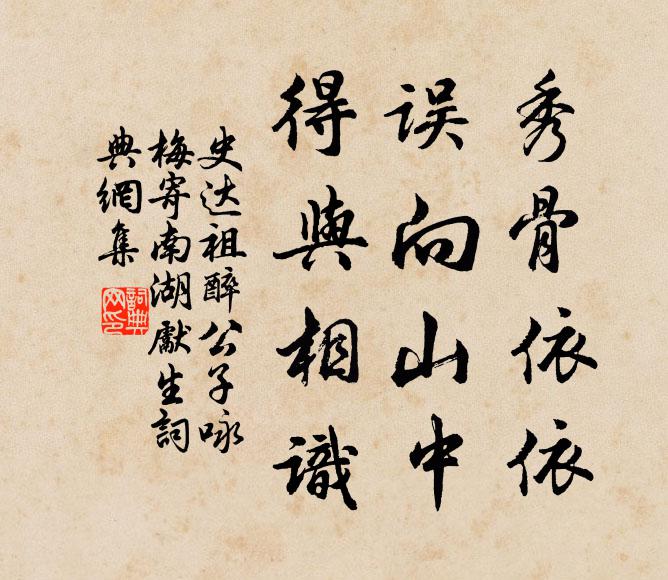 秀骨依依
误向山中
得與相識
史达祖醉公子咏
梅寄南湖獻生詞
典網集
詞典
网印